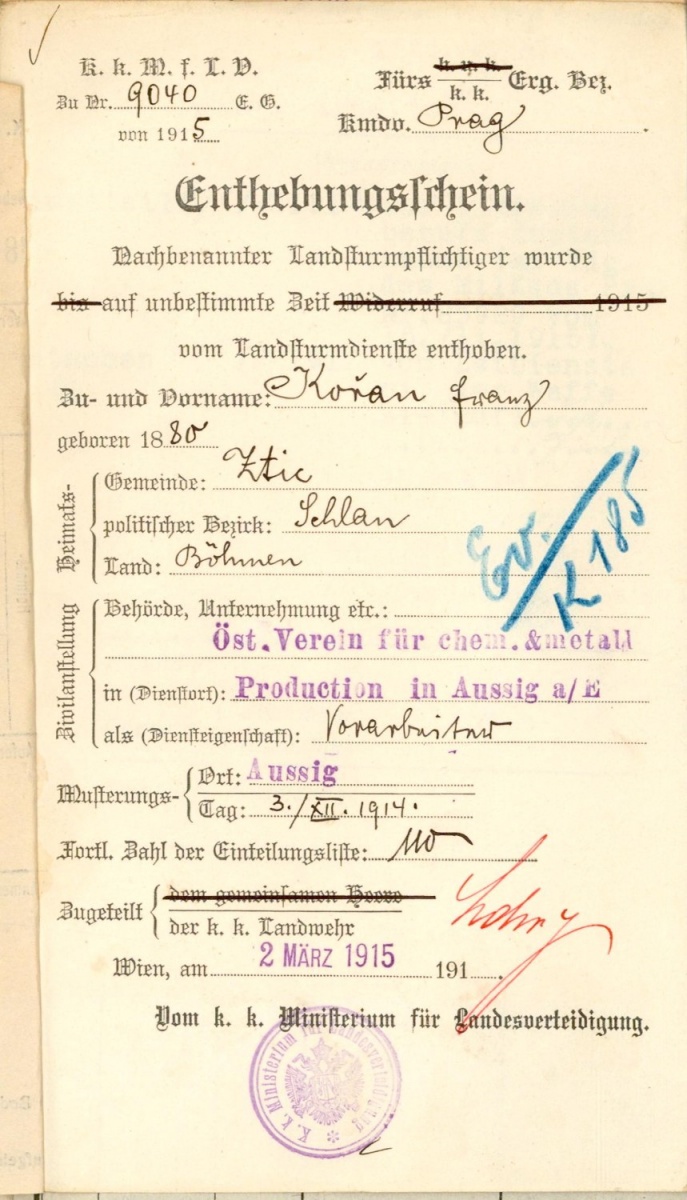 K. k. M. f. L. V.
Zu Nr. 9040 E. G.
von 1915
Fürs k. u. k. Erg. Bez.
k. k.
Kmdo. Prag.
Enthebungsschein.
Nachbenannter Landsturmpflichtiger wurde
bis auf unbestimmte Zeit Widerruf 1915
vom Landsturmdienste enthoben.
Zu- und Vorname: Kořan Franz
geboren 1880
Heimats-
Gemeinde: Ztic
politischer Bezirk: Schlan
Land: Böhmen
Ev.
K 185
Zivilanstellung
Behörde, Unternehmung etc.:
Öst. Verein für chem. & metall
in (Dienstort): Production in Aussig a/E
als (Diensteigenschaft): Vorarbeiter
Musterungs-
Ort: Aussig
Tag: 3./XII. 1914.
Fortl. Zahl der Einteilungsliste: 110
Zugeteilt
dem gemeinsamen Heere
der k. k. Landwehr
Wien, am 2 MÄRZ 1915 191
Vom k. k. Ministerium für Landesverteidigung.
K. k. Ministerium für Landesverteidigung